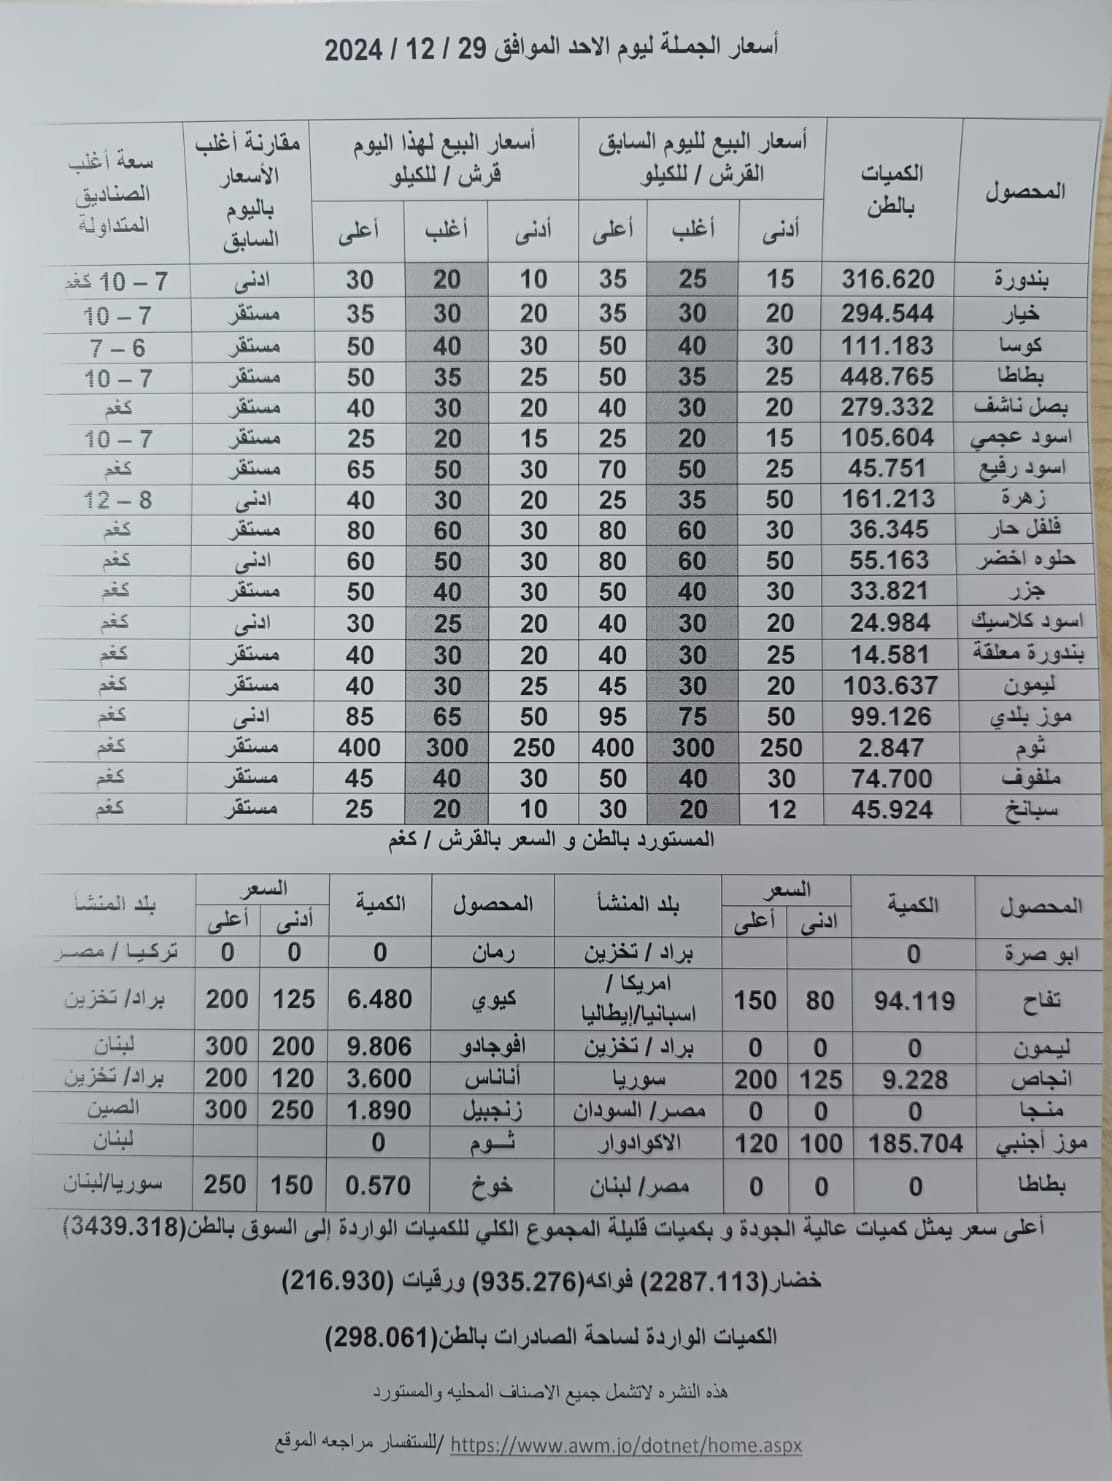 أسعار الجملة ليوم الاحد الموافق 29 / 12 / 2024
المحصول الكميات بالطن أسعار البيع لليوم السابق القرش / للكيلو أسعار البيع لهذا اليوم قرش / للكيلو مقارنة أغلب الأسعار باليوم السابق سعة أغلب الصناديق المتداولة
أدنى أغلب أعلى أدنى أغلب أعلى
بندورة 316.620 15 25 35 10 20 30 ادنى 7 – 10 كغم
خيار 294.544 20 30 35 20 30 35 مستقر 7 – 10
كوسا 111.183 30 40 50 30 40 50 مستقر 6 – 7
بطاطا 448.765 25 35 50 25 35 50 مستقر 7 – 10
بصل ناشف 279.332 20 30 40 20 30 40 مستقر كغم
اسود عجمي 105.604 15 20 25 15 20 25 مستقر 7 – 10
اسود رفيع 45.751 25 50 70 30 50 65 مستقر كغم
زهرة 161.213 50 35 25 20 30 40 ادنى 8 – 12
فلفل حار 36.345 30 60 80 30 60 80 مستقر كغم
حلوه اخضر 55.163 50 60 80 30 50 60 ادنى كغم
جزر 33.821 30 40 50 30 40 50 مستقر كغم
اسود كلاسيك 24.984 20 30 40 20 25 30 ادنى كغم
بندورة معلقة 14.581 25 30 40 20 30 40 مستقر كغم
ليمون 103.637 20 30 45 25 30 40 مستقر كغم
موز بلدي 99.126 50 75 95 50 65 85 ادنى كغم
ثوم 2.847 250 300 400 250 300 400 مستقر كغم
ملفوف 74.700 30 40 50 30 40 45 مستقر كغم
سبانخ 45.924 12 20 30 10 20 25 مستقر كغم
المستورد بالطن و السعر بالقرش / كغم
المحصول الكمية السعر بلد المنشأ المحصول الكمية السعر بلد المنشأ
ادنى أعلى أدنى أعلى
ابو صرة 0 براد / تخزين رمان 0 0 0 تركيا / مصر
تفاح 94.119 80 150 امريكا / اسبانيا/إيطاليا كيوي 6.480 125 200 براد/ تخزين
ليمون 0 0 0 براد / تخزين افوجادو 9.806 200 300 لبنان
انجاص 9.228 125 200 سوريا أناناس 3.600 120 200 براد/ تخزين
منجا 0 0 0 مصر/ السودان زنجبيل 1.890 250 300 الصين
موز أجنبي 185.704 100 120 الاكوادوار ثوم 0 لبنان
بطاطا 0 0 0 مصر/ لبنان خوخ 0.570 150 250 سوريا/لبنان
أعلى سعر يمثل كميات عالية الجودة و بكميات قليلة المجموع الكلي للكميات الواردة إلى السوق بالطن(3439.318)
خضار(2287.113) فواكه(935.276) ورقيات (216.930)
الكميات الواردة لساحة الصادرات بالطن(298.061)
هذه النشره لاتشمل جميع الاصناف المحليه والمستورد
https://www.awm.jo/dotnet/home.aspx /للستفسار مراجعه الموقع